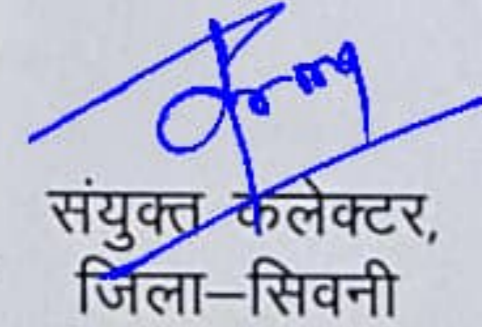 संयुक्त कलेक्टर,
जिला–सिवनी